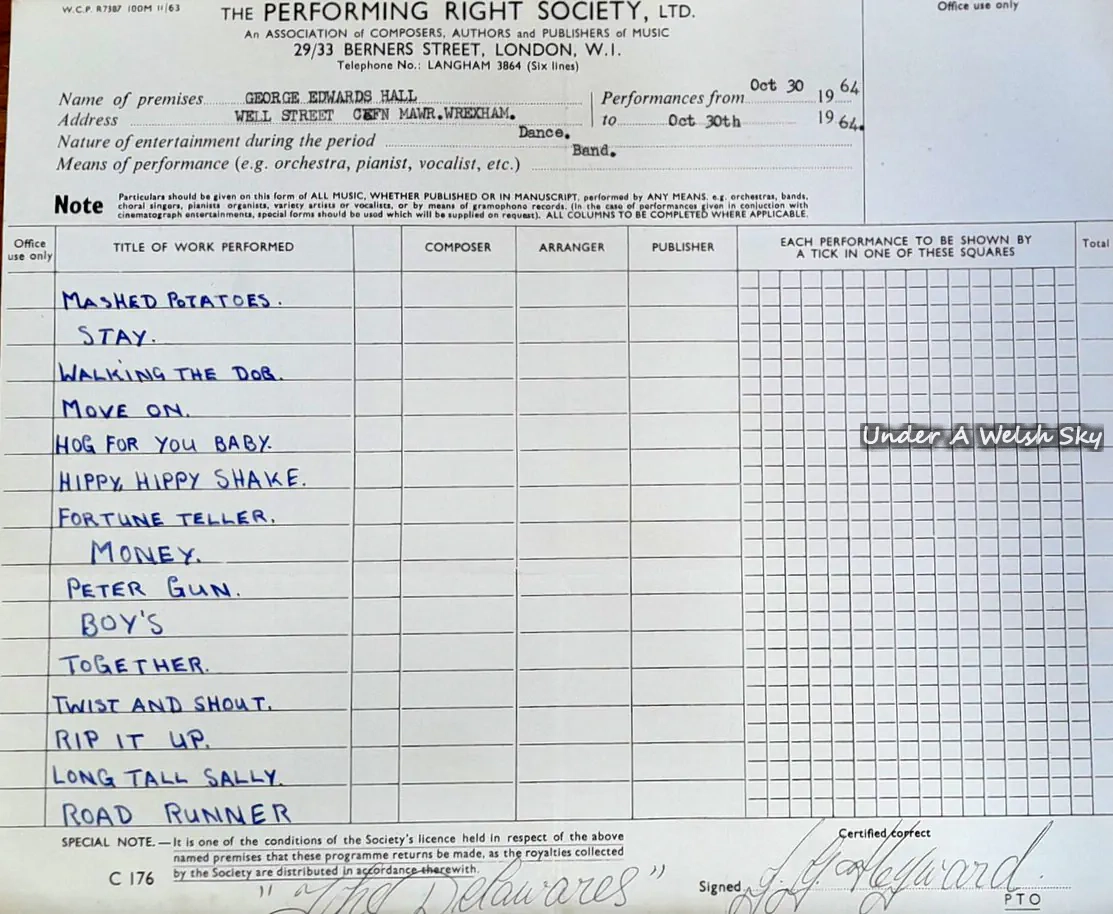 W.C.P. R7387 100M 11/63
THE PERFORMING RIGHT SOCIETY, LTD.
Office use only
An ASSOCIATION of COMPOSERS, AUTHORS and PUBLISHERS of MUSIC
29/33 BERNERS STREET, LONDON, W.1.
Telephone No.: LANGHAM 3864 (Six lines)
Name of premises GEORGE EDWARDS HALL
Address WELL STREET CEFN MAWR.WREXHAM.
Performances from Oct 30 1964
to Oct 30th 1964.
Nature of entertainment during the period Dance.
Means of performance (e.g. orchestra, pianist, vocalist, etc.) Band.
Note
Particulars should be given on this form of ALL MUSIC, WHETHER PUBLISHED OR IN MANUSCRIPT, performed by ANY MEANS. e.g. orchestras, bands,
choral singers, pianists organists, variety artists or vocalists, or by means of gramophone records. (In the case of performances given in conjuction with
cinematograph entertainments, special forms should be used which will be supplied on request). ALL COLUMNS TO BE COMPLETED WHERE APPLICABLE.
Office use only
TITLE OF WORK PERFORMED
COMPOSER
ARRANGER
PUBLISHER
EACH PERFORMANCE TO BE SHOWN BY
A TICK IN ONE OF THESE SQUARES
Total
MASHED POTATOES.
STAY.
WALKING THE DOG.
MOVE ON.
HOG FOR YOU BABY.
HIPPY, HIPPY SHAKE.
FORTUNE TELLER.
MONEY.
PETER GUN.
BOY'S
TOGETHER.
TWIST AND SHOUT.
RIP IT UP.
LONG TALL SALLY.
ROAD RUNNER
Under A Welsh Sky
SPECIAL NOTE.—It is one of the conditions of the Society's licence held in respect of the above
named premises that these programme returns be made, as the royalties collected
by the Society are distributed in accordance therewith.
C 176
"The Delawares"
Certified correct
Signed Heyward.
PTO